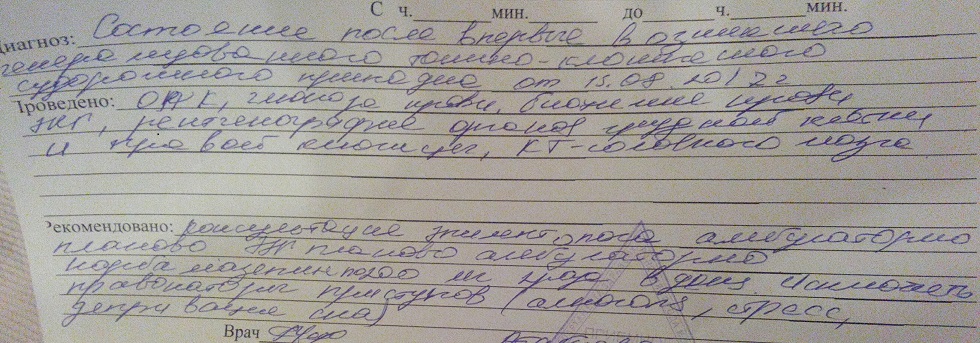 С ч. мин. до ч. мин.
Диагноз: Состояние после впервые возникшего
генерализованного тонико-клонического
судорожного припадка от 15.08.2012г
Проведено: ОАК, глюкоза крови, биохимия крови
ЭКГ, рентгенография органов грудной клетки
и правой ключицы, КТ-головного мозга
Рекомендовано: консультация эпилептолога амбулаторно
планово ЭЭГ планово амбулаторно
карбамазепин по 200 мг 2 раза в день. Исключить
провокаторы приступов (алкоголь, стресс,
депривация сна)
Врач